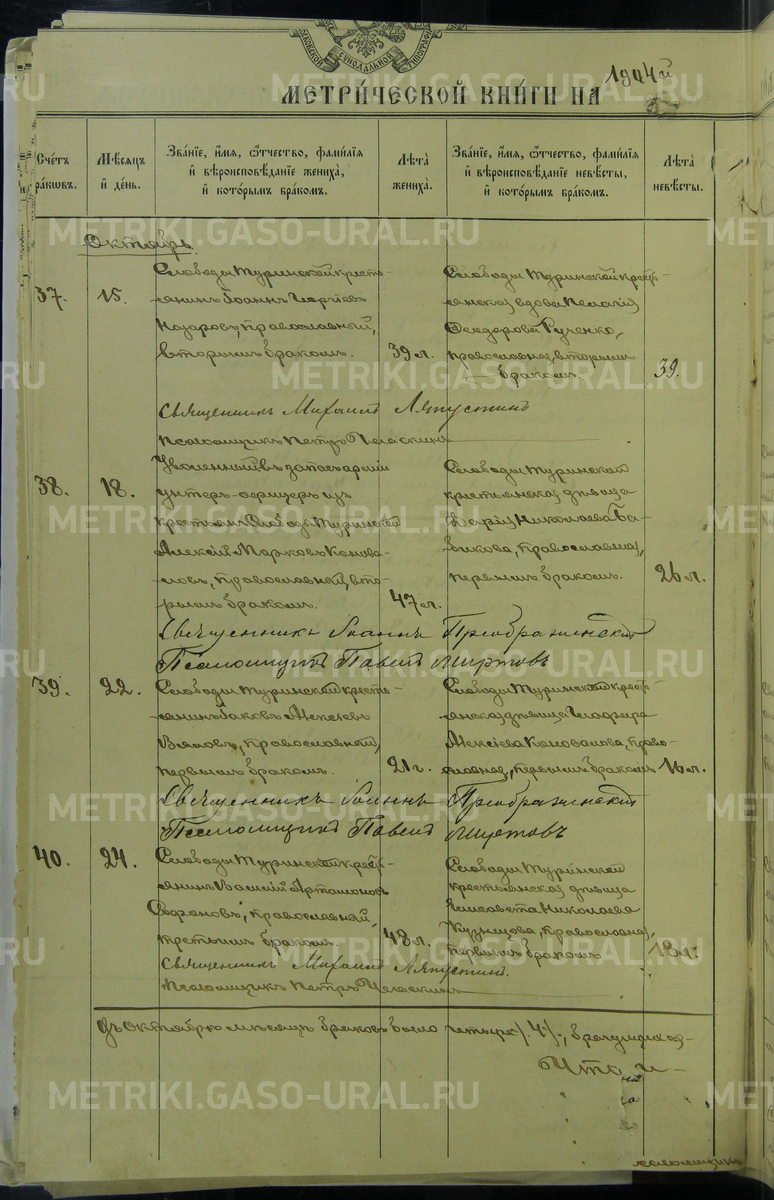 МОСКОВСКОЙ СУНОДАЛЬНОЙ ТИПОГРАФІИ
МЕТРИ́ЧЕСКОЙ КНИ́ГИ НА 1904й
Счетъ бра́ковъ.
Мѣсяцъ и҆ де́нь.
Зва́нїе, и҆́мя, ѻ҆́тчество, фами́лїя и҆ вѣроисповѣ́данїе жениха̀, и҆ кото́рымъ бра́комъ.
Лѣ́та жениха̀.
Зва́нїе, и҆́мя, ѻ҆́тчество, фами́лїя и҆ вѣроисповѣ́данїе невѣ́сты, и҆ кото́рымъ бра́комъ.
Лѣ́та невѣ́сты.
Октябрь
37.
15.
Слободы Туринской кресть-
янинъ Іоаннъ Георгіевъ
Назаровъ, православный,
вторымъ бракомъ.
39 л.
Слободы Туринской крест-
янская вдова Пелагія
Ѳеодорова Рученко,
православная, вторымъ
бракомъ.
39.
Священникъ Михаилъ Ляпустинъ
Псаломщикъ Петръ
38.
18.
Уволенный въ запасъ арміи
унтеръ-офицеръ изъ
крестьянъ Слободы Туринской
Алексій Марковъ Конова-
ловъ, православный, вто-
рымъ бракомъ.
47 л.
Слободы Туринской
крестьянская дѣвица
Марія Николаева
православная,
первымъ бракомъ.
26 л.
Священникъ Іоаннъ Преображенскій
Псаломщикъ Павелъ Миртовъ
39.
22.
Слободы Туринской кресть-
янинъ Іаковъ Алексіевъ
православный,
первымъ бракомъ.
21 г.
Слободы Туринской крест-
янская дѣвица Глафира
Алексіева Коновалова, право-
славная, первымъ бракомъ
16 л.
Священникъ Іоаннъ Преображенскій
Псаломщикъ Павелъ Миртовъ
40.
24.
Слободы Туринской крест-
янинъ Василій Артамоновъ
Сафоновъ, православный,
третьимъ бракомъ.
48 л.
Слободы Туринской
крестьянская дѣвица
Елисавета Николаева
Кузнецова, православная,
первымъ бракомъ
18 л.
Священникъ Михаилъ Ляпустинъ.
Псаломщикъ Петръ
Въ Октябрѣ мѣсяцѣ браковъ было четыре /.4/.,
Что и
METRIKI.GASO-URAL.RU